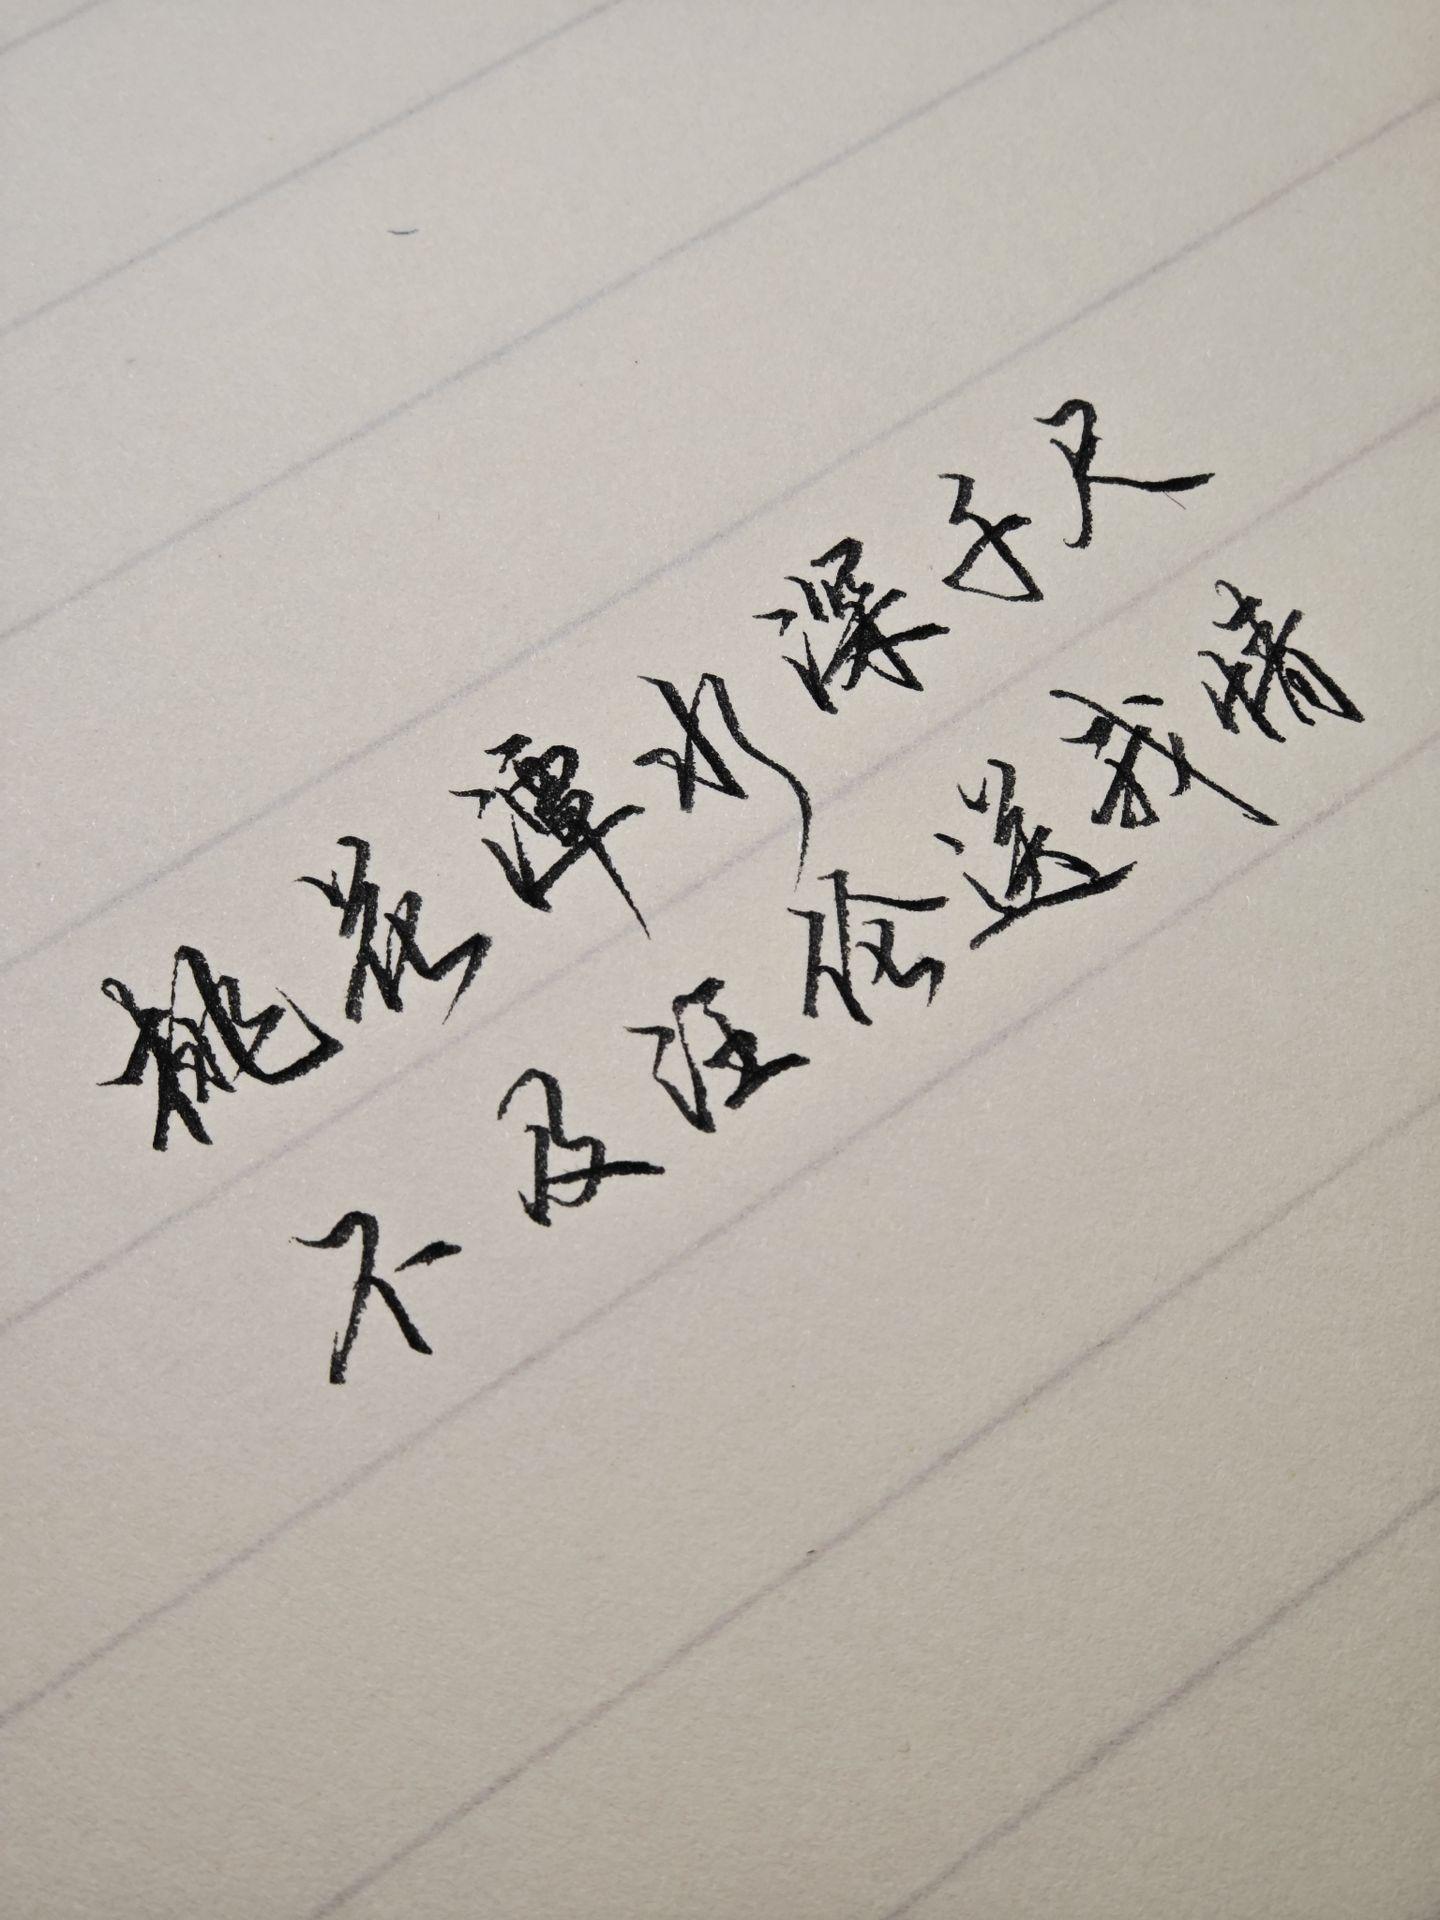 桃花潭水深千尺
不及汪伦送我情